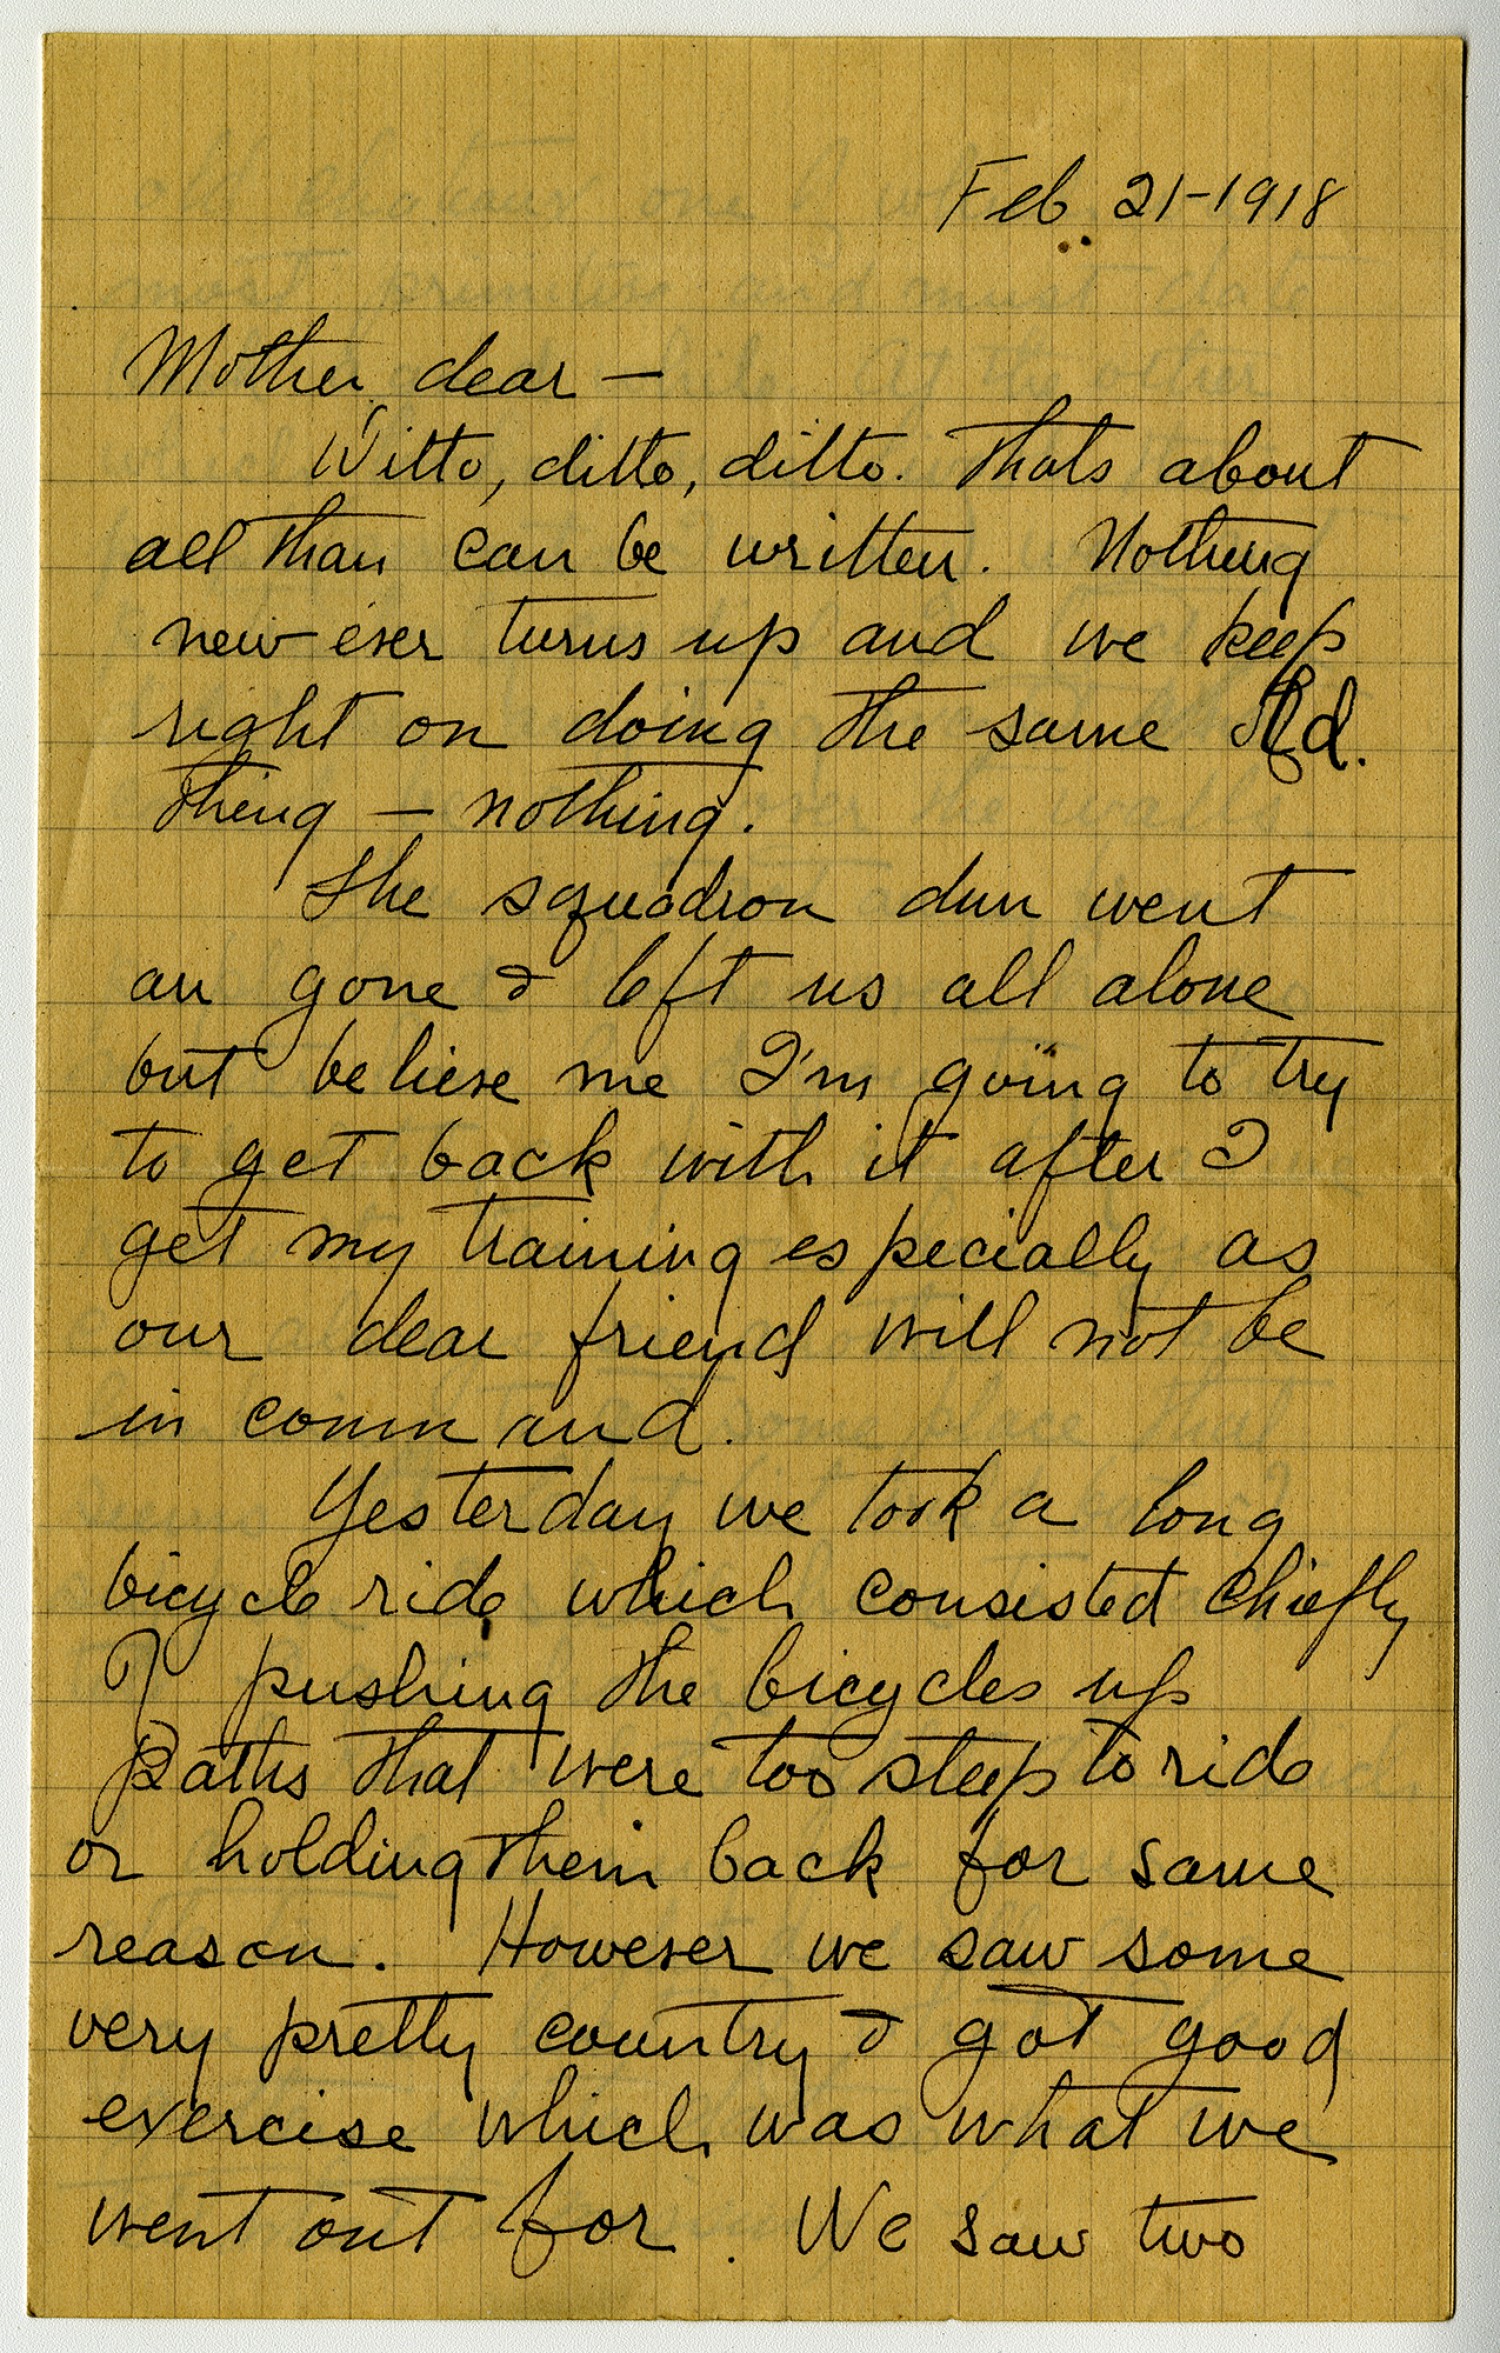 Feb. 21-1918
Mother dear —
Ditto, ditto, ditto. Thats about
all than can be written. Nothing
new ever turns up and we keep
right on doing the same old.
thing — nothing.
The squadron dun went
an gone & left us all alone
but believe me I'm going to try
to get back with it after I
get my training especially as
our dear friend will not be
in command.
Yesterday we took a long
bicycle ride which consisted chiefly
of pushing the bicycles up
Paths that were too steep to ride
or holding them back for same
reason. However we saw some
very pretty country & got good
exercise which was what we
went out for. We saw two